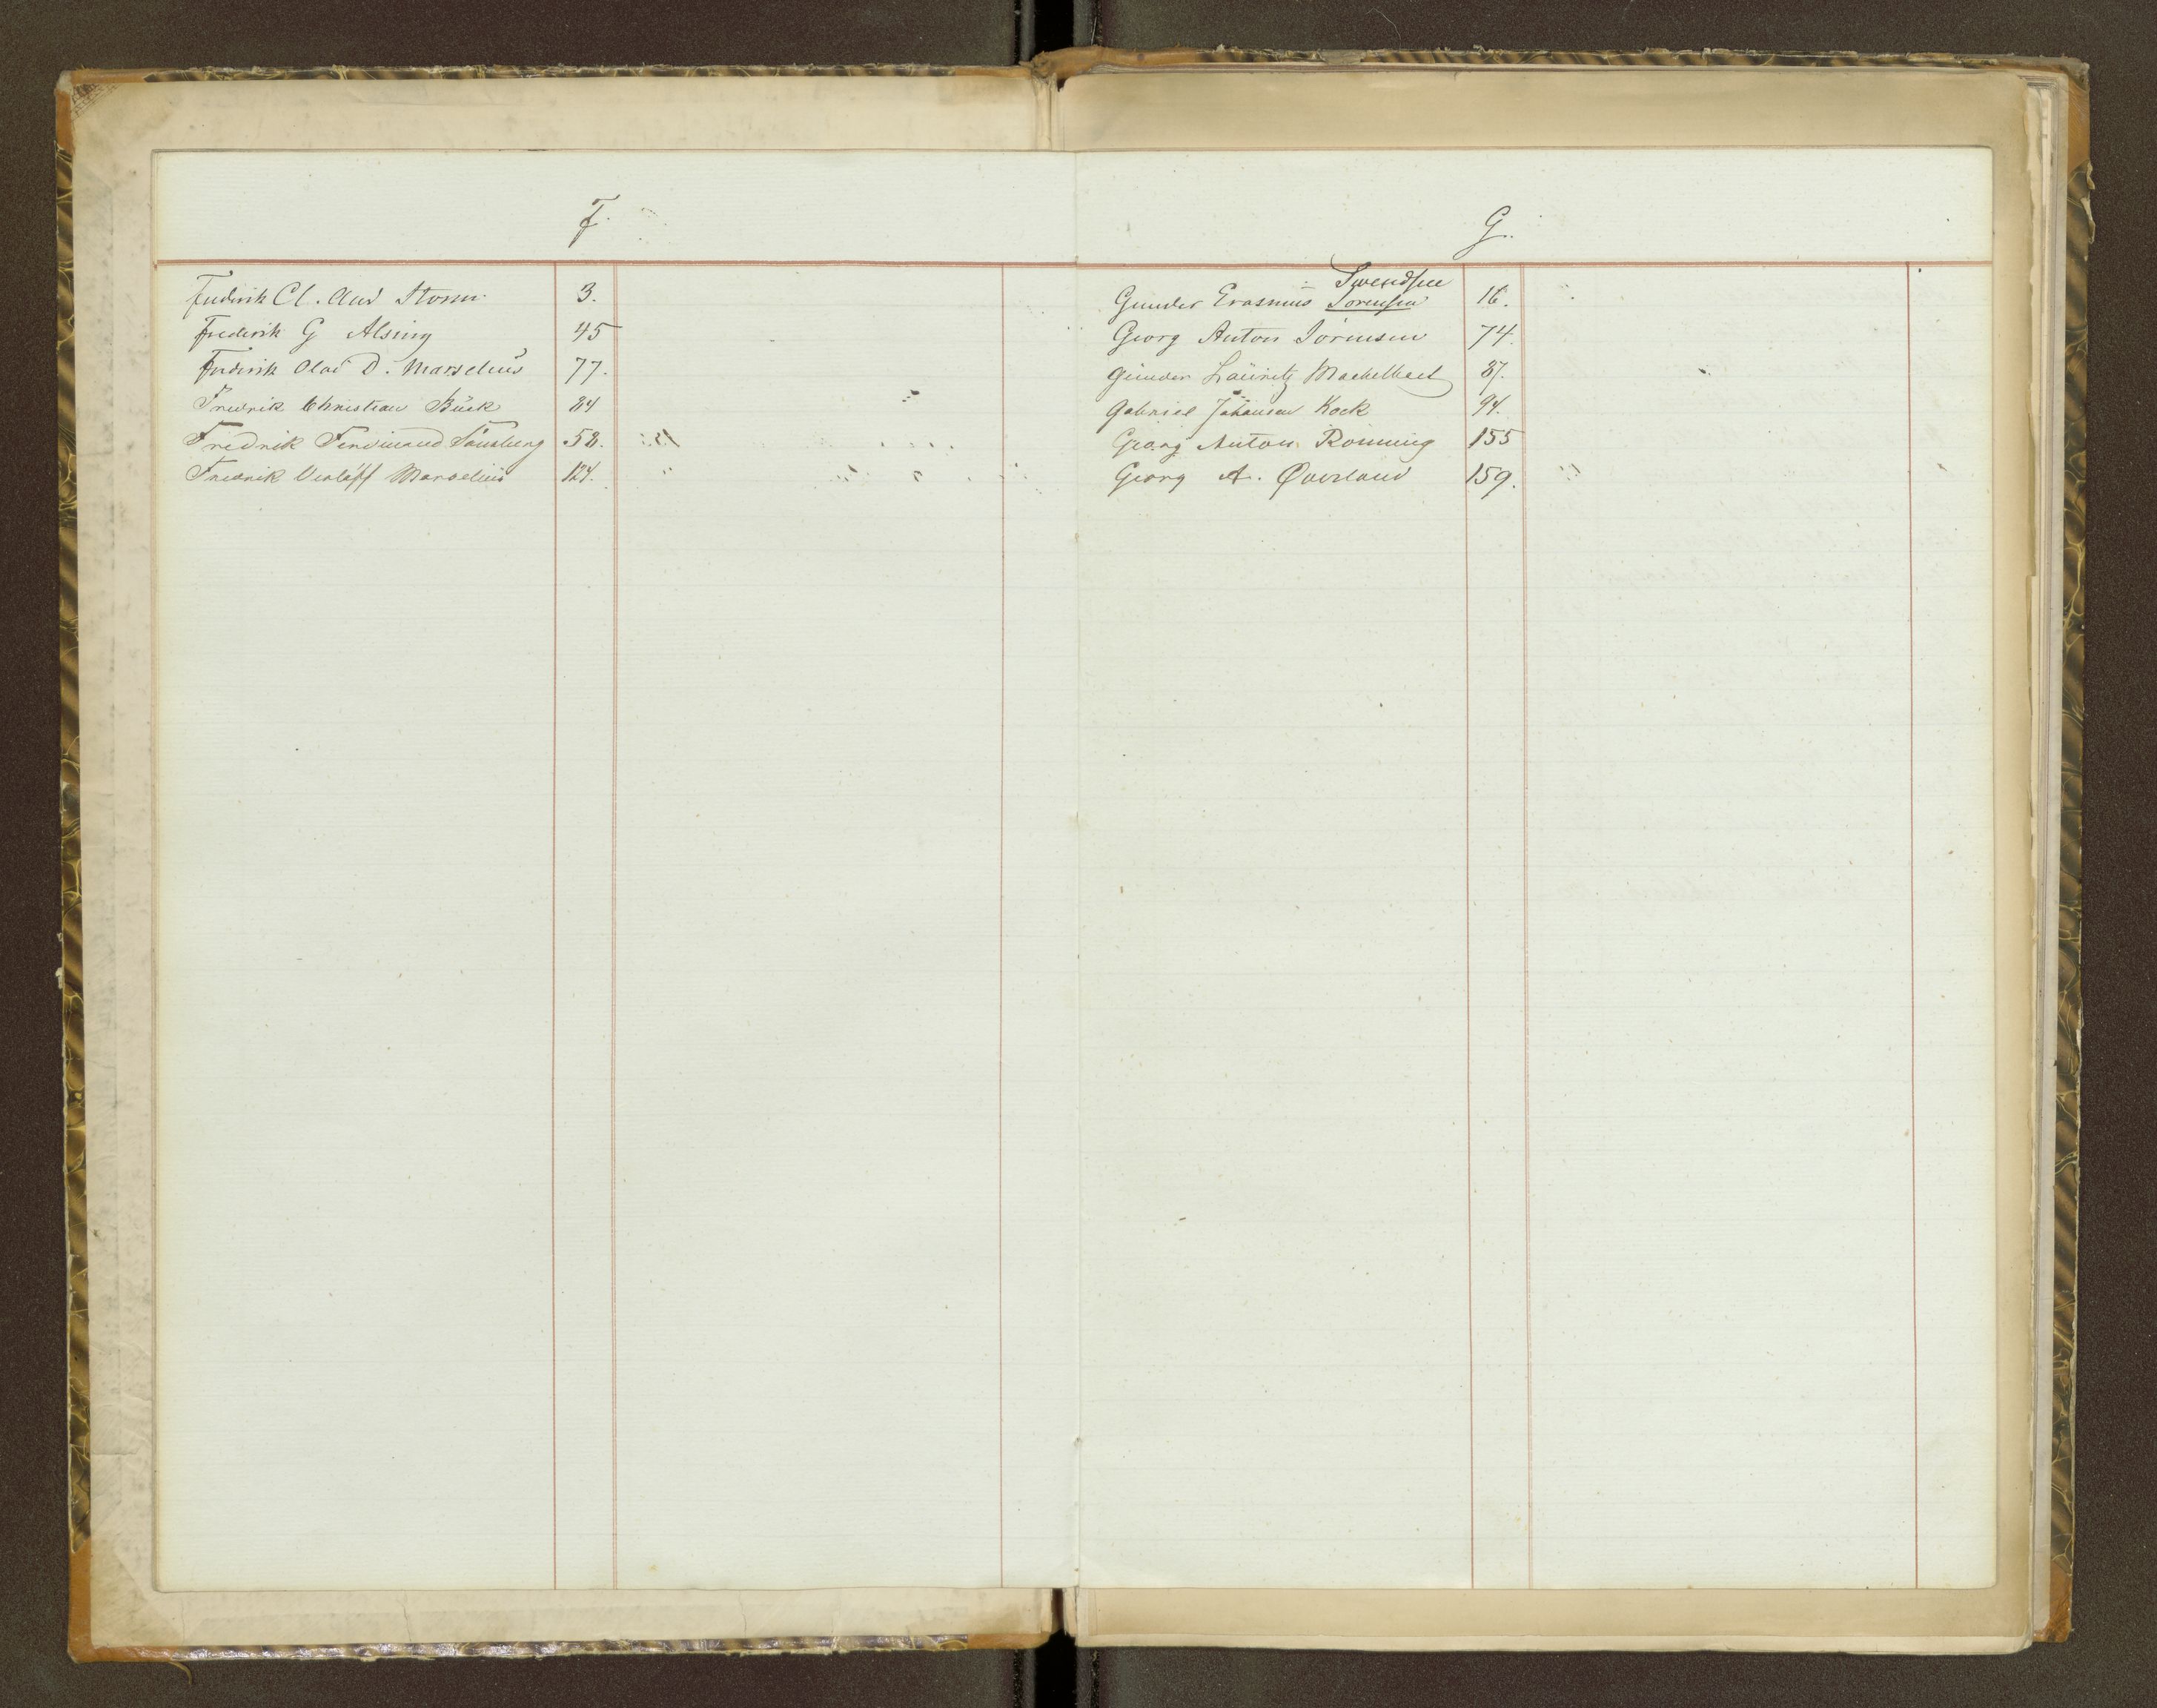 F.
Frederik Cl. And Storm 3.
Frederik G Alsing 45
Fredrik Olav D. Marselius 77.
Fredrik Christian Bück 84
Fredrik Ferdinand Tønsberg 58.
Fredrik Marselius 124.
G.
Svendsen
Gunder Erasmus Sørensen 16.
Georg Anton Sørensen 74.
Gunder Lauritz 87.
Gabriel Johansen Kock 94.
Georg Anton Rønning 155
Georg A. Øverland 159.